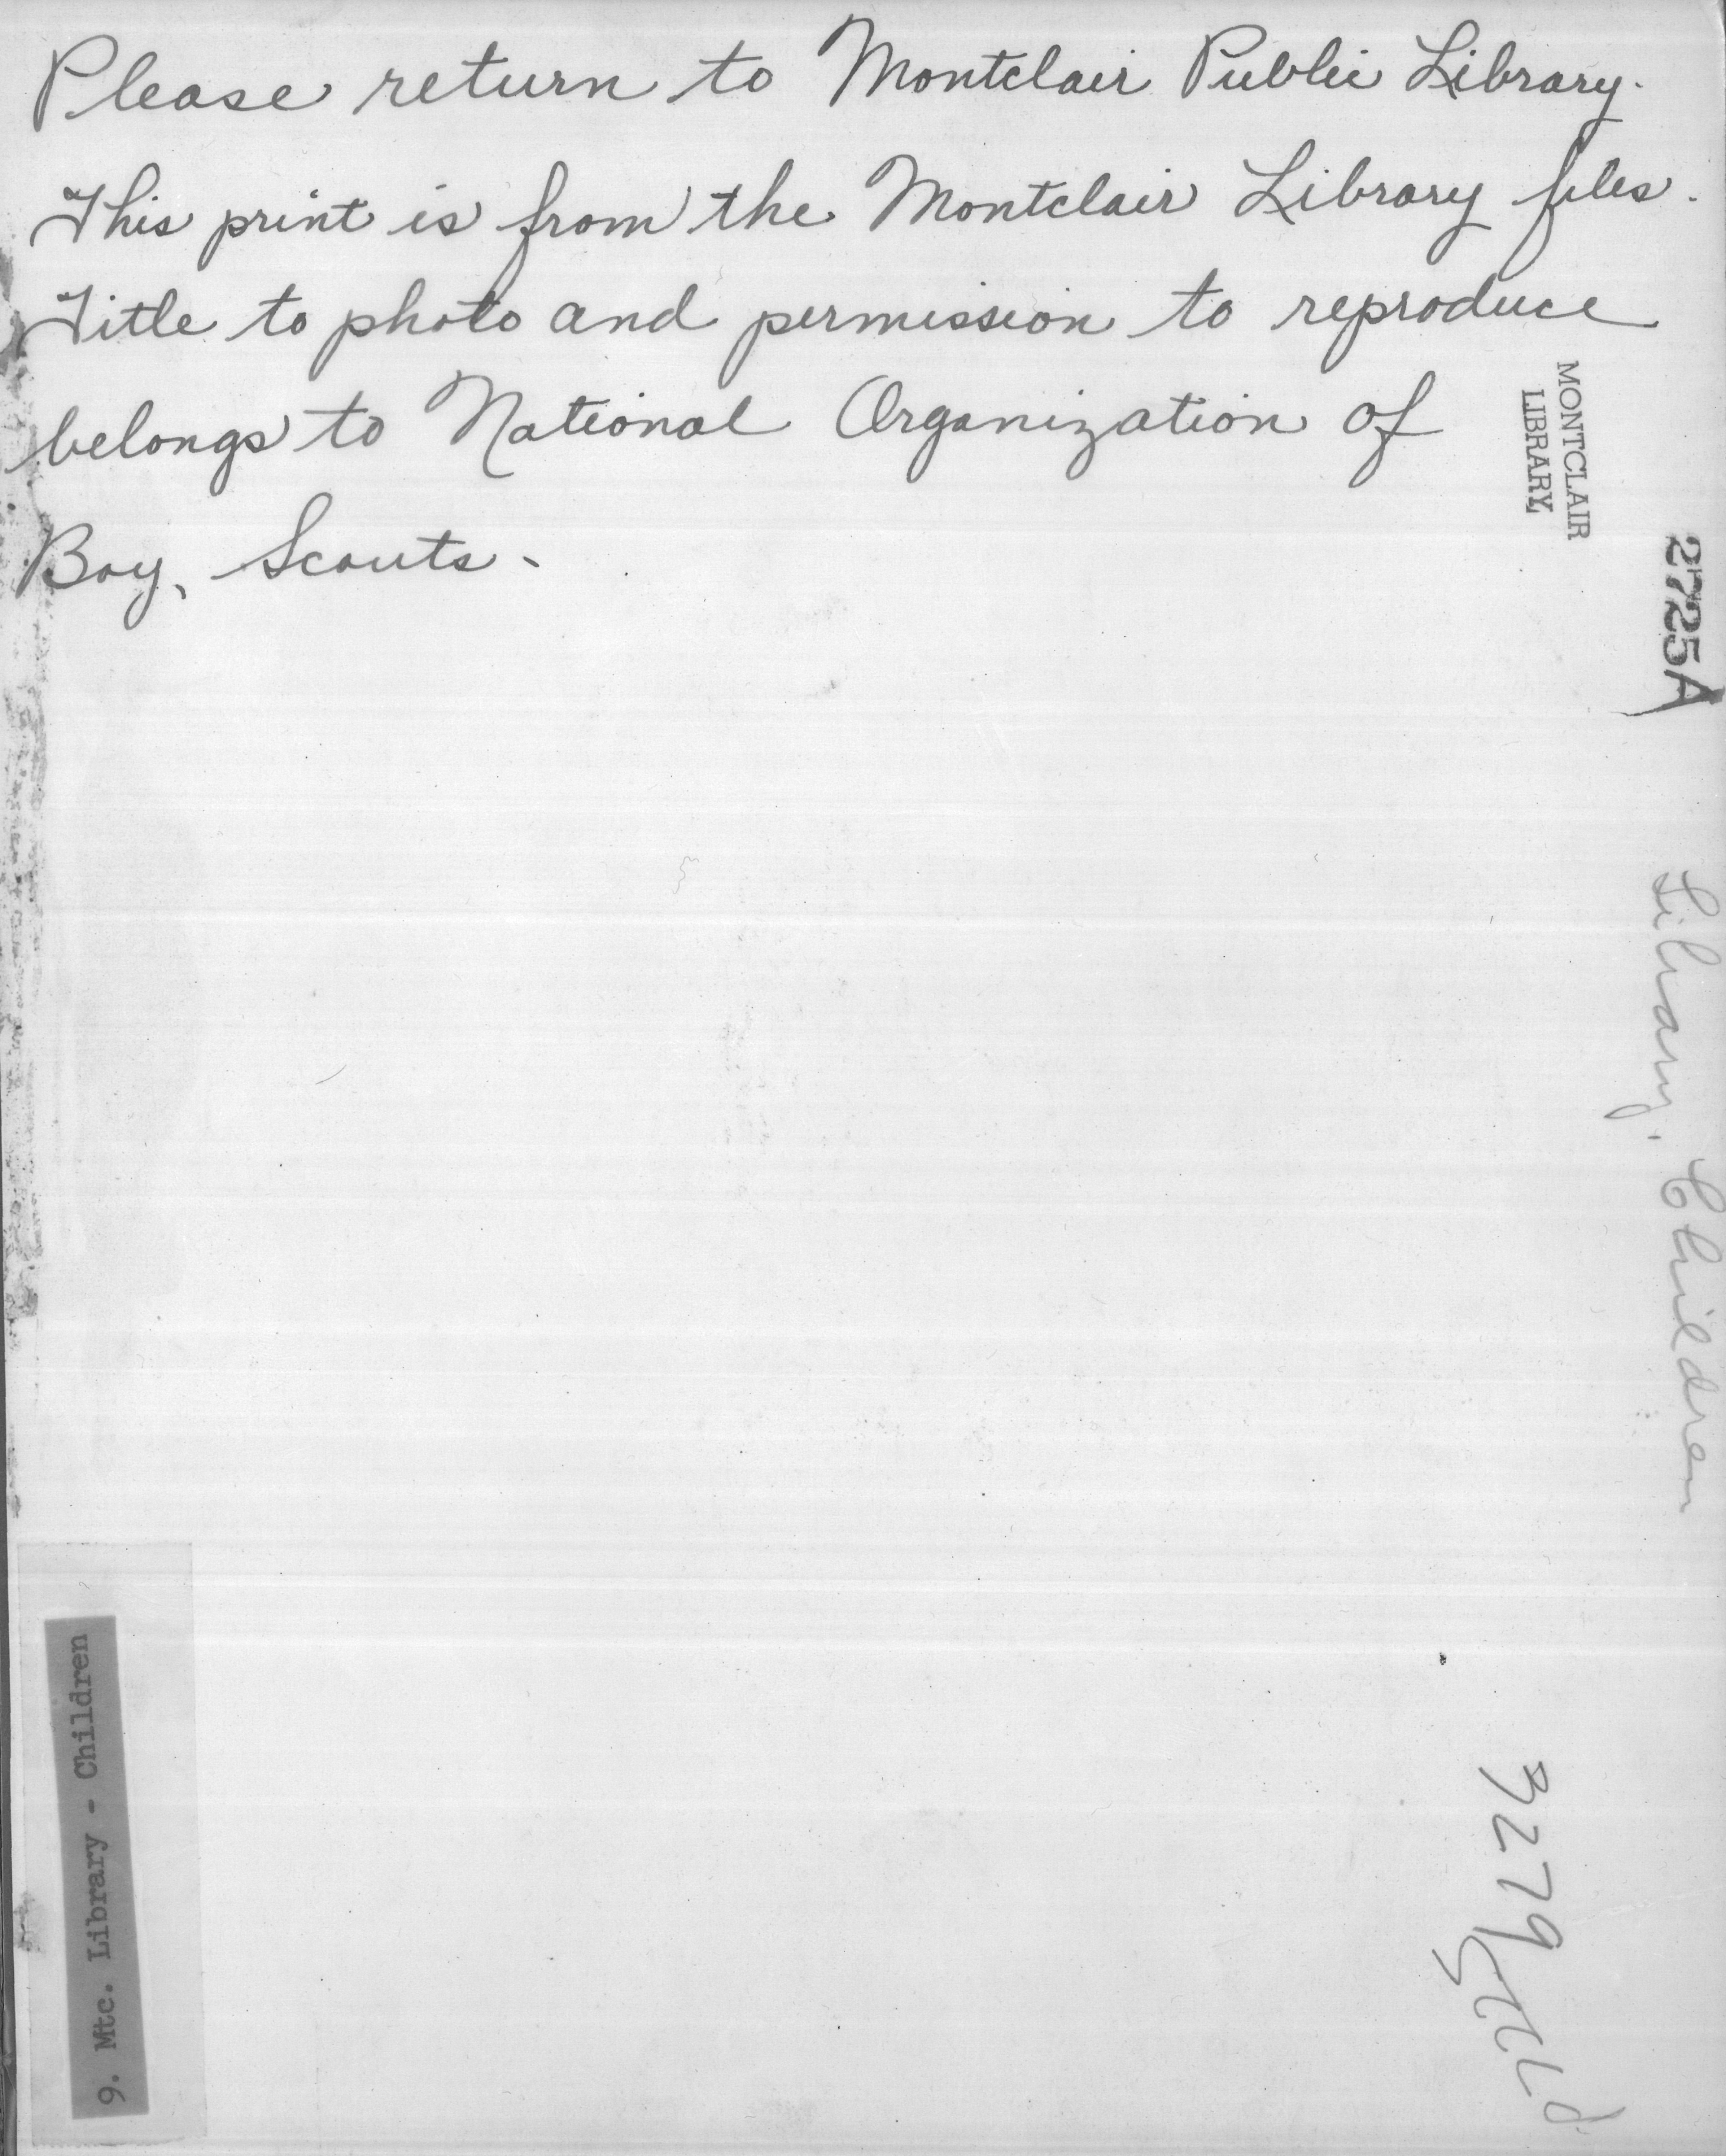 Please return to Montclair Public Library.
This print is from the Montclair Library files.
Title to photo and permission to reproduce
belongs to National Organization of
Boy, Scouts.
MONTCLAIR
LIBRARY
2725A
Library. Children
3279
9. Mtc. Library - Children